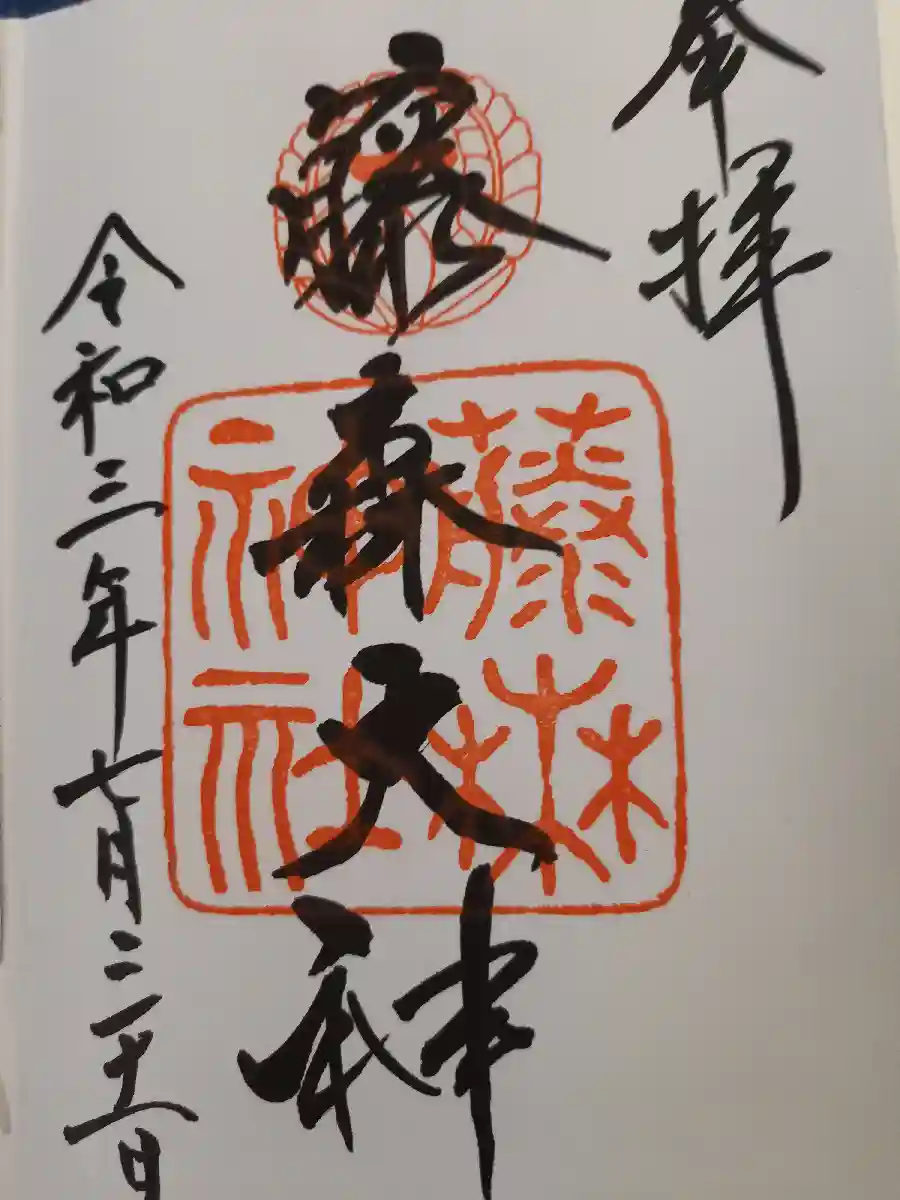 奉拝
藤森大神
藤森神社
令和三年七月三十一日